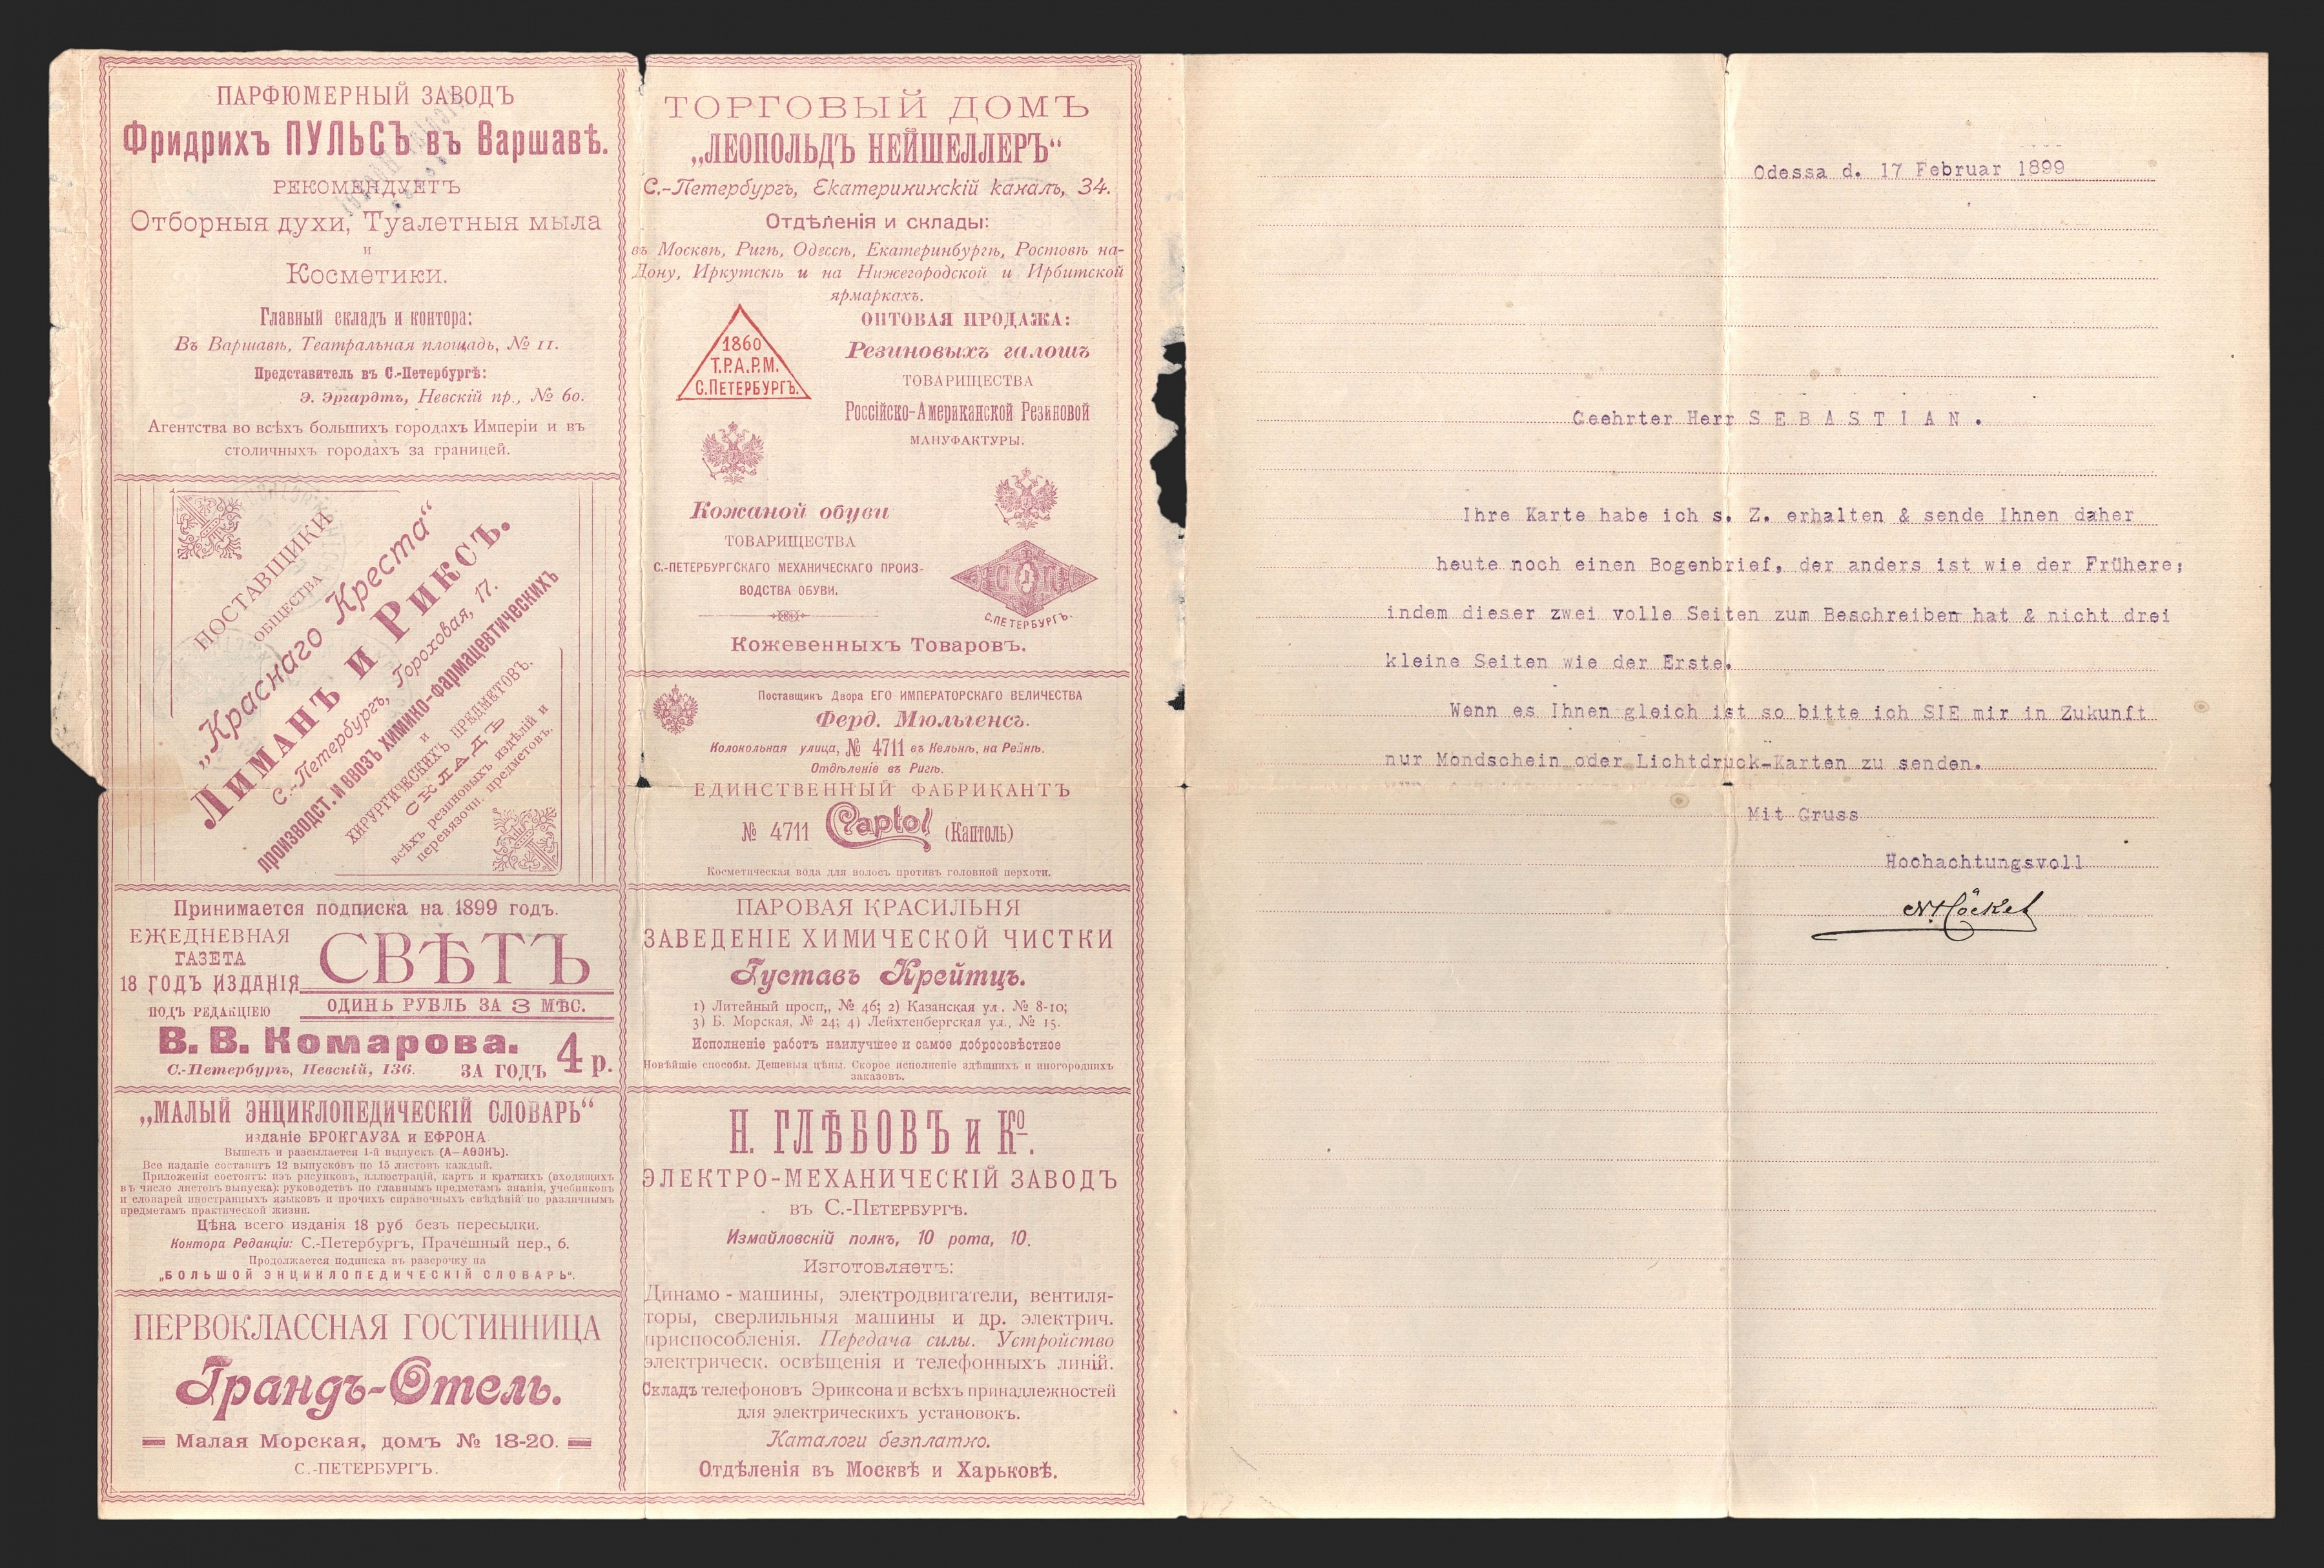 ПАРФЮМЕРНЫЙ ЗАВОДЪ
Фридрихъ ПУЛЬСЪ въ Варшавѣ.
РЕКОМЕНДУЕТЪ
Отборныя духи, Туалетныя мыла
и
Косметики.
Главный складъ и контора:
Въ Варшавѣ, Театральная площадь, № 11.
Представитель въ С.-Петербургѣ:
Э. Эргардтъ, Невскій пр., № 60.
Агентства во всѣхъ большихъ городахъ Имперіи и въ
столичныхъ городахъ за границей.
ПОСТАВЩИКИ
ОБЩЕСТВА
„Краснаго Креста“
ЛИМАНЪ И РИКСЪ.
С.-Петербургъ, Гороховая, 17.
производст. и ввозъ химико-фармацевтическихъ
и
ХИРУРГИЧЕСКИХЪ ПРЕДМЕТОВЪ.
СКЛАДЪ
всѣхъ резиновыхъ издѣлій и
перевязочн. предметовъ.
Принимается подписка на 1899 годъ.
ЕЖЕДНЕВНАЯ
ГАЗЕТА
18 ГОДЪ ИЗДАНІЯ
СВѢТЪ
ПОДЪ РЕДАКЦІЕЮ
ОДИНЬ РУБЛЬ ЗА 3 МѢС.
В. В. Комарова.
С.-Петербургъ, Невскій, 136.
ЗА ГОДЪ 4 р.
„МАЛЫЙ ЭНЦИКЛОПЕДИЧЕСКІЙ СЛОВАРЬ“
изданіе БРОКГАУЗА и ЕФРОНА
Вышелъ и разсылается 1-й выпускъ (А—АѲОНЪ).
Все изданіе составитъ 12 выпусковъ по 15 листовъ каждый.
Приложенія состоятъ: изъ рисунковъ, иллюстрацій, картъ и краткихъ (входящихъ
въ число листовъ выпуска): руководствъ по главнымъ предметамъ знанія, учебниковъ
и словарей иностранныхъ языковъ и прочихъ справочныхъ свѣдѣній по различнымъ
предметамъ практической жизни.
Цѣна всего изданія 18 руб безъ пересылки.
Контора Редакціи: С.-Петербургъ, Прачешный пер., 6.
Продолжается подписка въ разсрочку на
„БОЛЬШОЙ ЭНЦИКЛОПЕДИЧЕСКІЙ СЛОВАРЬ“.
ПЕРВОКЛАССНАЯ ГОСТИННИЦА
Грандъ-Отель.
Малая Морская, домъ № 18-20.
С.-ПЕТЕРБУРГЪ.
ТОРГОВЫЙ ДОМЪ
„ЛЕОПОЛЬДЪ НЕЙШЕЛЛЕРЪ“
С.-Петербургъ, Екатерининскій каналъ, 34.
Отдѣленія и склады:
въ Москвѣ, Ригѣ, Одессѣ, Екатеринбургѣ, Ростовѣ на-
Дону, Иркутскѣ и на Нижегородской и Ирбитской
ярмаркахъ.
1860
Т.Р.А.Р.М.
С.ПЕТЕРБУРГЪ.
ОПТОВАЯ ПРОДАЖА:
Резиновыхъ галошъ
ТОВАРИЩЕСТВА
Россійско-Американской Резиновой
МАНУФАКТУРЫ.
Кожаной обуви
ТОВАРИЩЕСТВА
С.-ПЕТЕРБУРГСКАГО МЕХАНИЧЕСКАГО ПРОИЗ-
ВОДСТВА ОБУВИ.
С.ПЕТЕРБУРГЪ.
Кожевенныхъ Товаровъ.
Поставщикъ Двора ЕГО ИМПЕРАТОРСКАГО ВЕЛИЧЕСТВА
Ферд. Мюльгенсъ.
Колокольная улица, № 4711 въ Кельнѣ, на Рейнѣ.
Отдѣленіе въ Ригѣ.
ЕДИНСТВЕННЫЙ ФАБРИКАНТЪ
№ 4711 Captol (Каптоль)
Косметическая вода для волосъ противъ головной перхоти.
ПАРОВАЯ КРАСИЛЬНЯ
ЗАВЕДЕНІЕ ХИМИЧЕСКОЙ ЧИСТКИ
Густавъ Крейтцъ.
1) Литейный просп., № 46; 2) Казанская ул., № 8-10;
3) Б. Морская, № 24; 4) Лейхтенбергская ул., № 15.
Исполненіе работъ наилучшее и самое добросовѣстное
Новѣйшіе способы. Дешевыя цѣны. Скорое исполненіе здѣшнихъ и иногороднихъ
заказовъ.
Н. ГЛѢБОВЪ и Кº.
ЭЛЕКТРО-МЕХАНИЧЕСКІЙ ЗАВОДЪ
въ С.-Петербургѣ.
Измайловскій полкъ, 10 рота, 10.
Изготовляетъ:
Динамо-машины, электродвигатели, вентиля-
торы, сверлильныя машины и др. электрич.
приспособленія. Передача силы. Устройство
электрическ. освѣщенія и телефонныхъ линій.
Складъ телефоновъ Эриксона и всѣхъ принадлежностей
для электрическихъ установокъ.
Каталоги безплатно.
Отдѣленія въ Москвѣ и Харьковѣ.
Odessa d. 17 Februar 1899
Geehrter Herr S E B A S T I A N .
Ihre Karte habe ich s. Z. erhalten & sende Ihnen daher
heute noch einen Bogenbrief, der anders ist wie der Frühere;
indem dieser zwei volle Seiten zum Beschreiben hat & nicht drei
kleine Seiten wie der Erste.
Wenn es Ihnen gleich ist so bitte ich SIE mir in Zukunft
nur Mondschein oder Lichtdruck-Karten zu senden.
Mit Gruss
Hochachtungsvoll